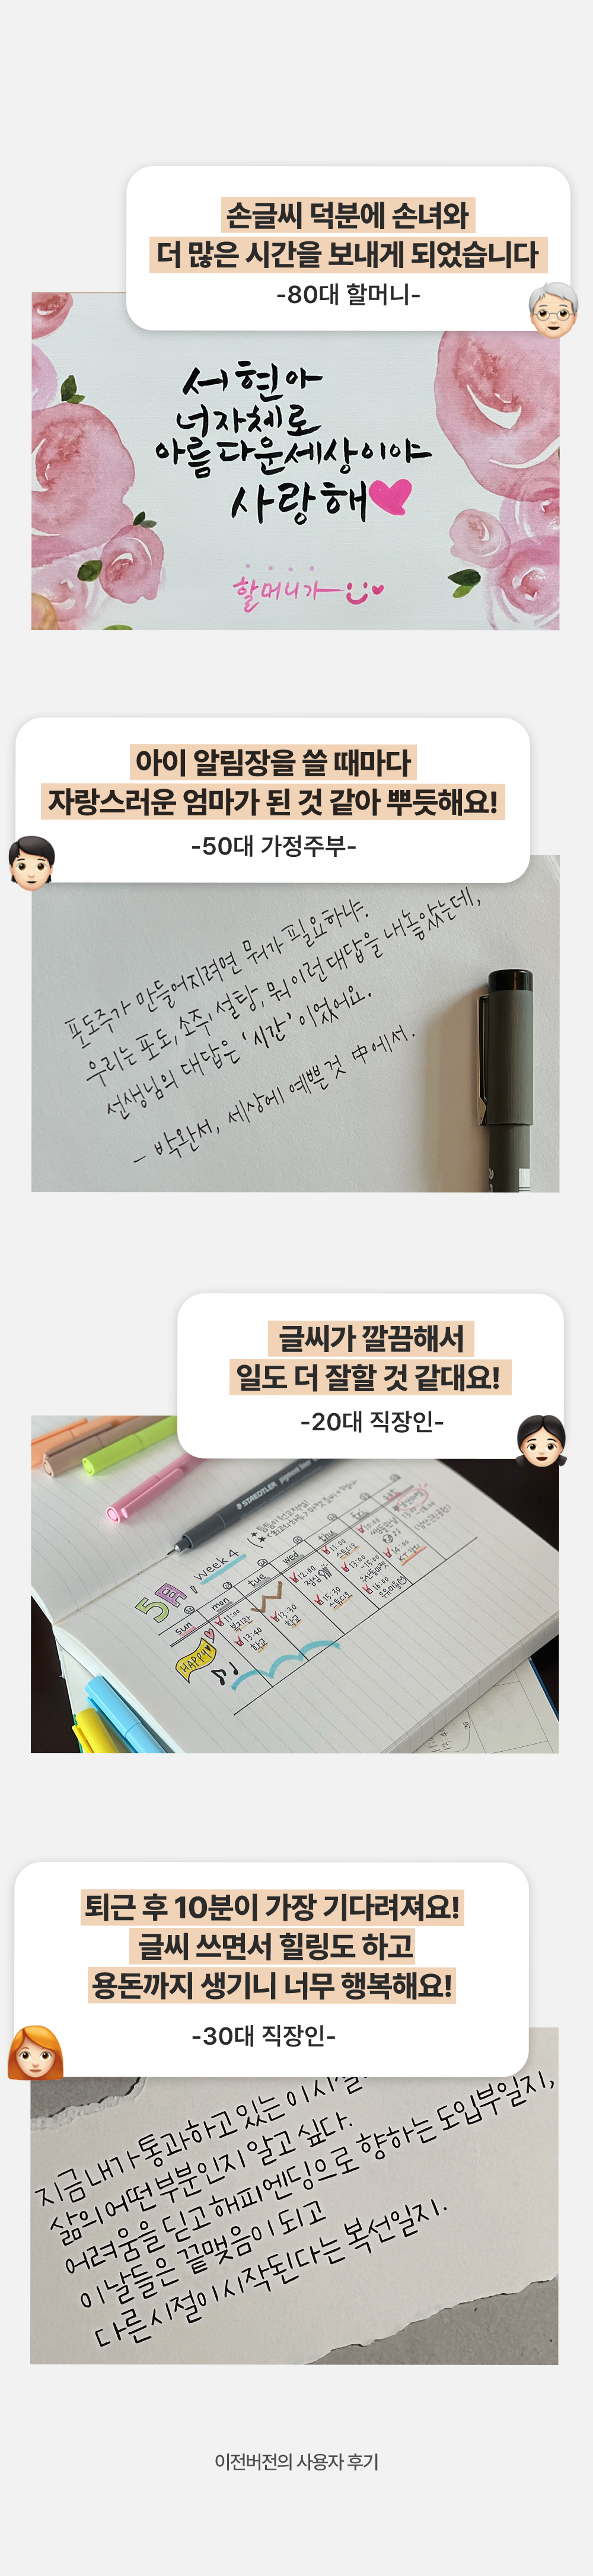 손글씨 덕분에 손녀와
더 많은 시간을 보내게 되었습니다
-80대 할머니-
서현아
너자체로
아름다운세상이야
사랑해
할머니가
아이 알림장을 쓸 때마다
자랑스러운 엄마가 된 것 같아 뿌듯해요!
-50대 가정주부-
포도주가 만들어지려면 뭐가 필요하냐.
우리는 포도, 소주, 설탕, 뭐 이런 대답을 내놓았는데,
선생님의 대답은 '시간' 이었어요.
- 박완서, 세상에 예쁜 것 中에서.
글씨가 깔끔해서
일도 더 잘할 것 같대요!
-20대 직장인-
STAEDTLER pigment liner
5月 week 4
sun mon tue wed thu fri
11:00 12:00 11:00
13:40 13:30 15:30 13:00 14:00
학교 학교 16:00
HAPPY
퇴근 후 10분이 가장 기다려져요!
글씨 쓰면서 힐링도 하고
용돈까지 생기니 너무 행복해요!
-30대 직장인-
지금 내가 통과하고 있는 이 시절
삶의 어떤 부분인지 알고 싶다.
어려움을 딛고 해피엔딩으로 향하는 도입부일지,
이 날들은 끝맺음이 되고
다른 시절이 시작된다는 복선일지.
이전버전의 사용자 후기